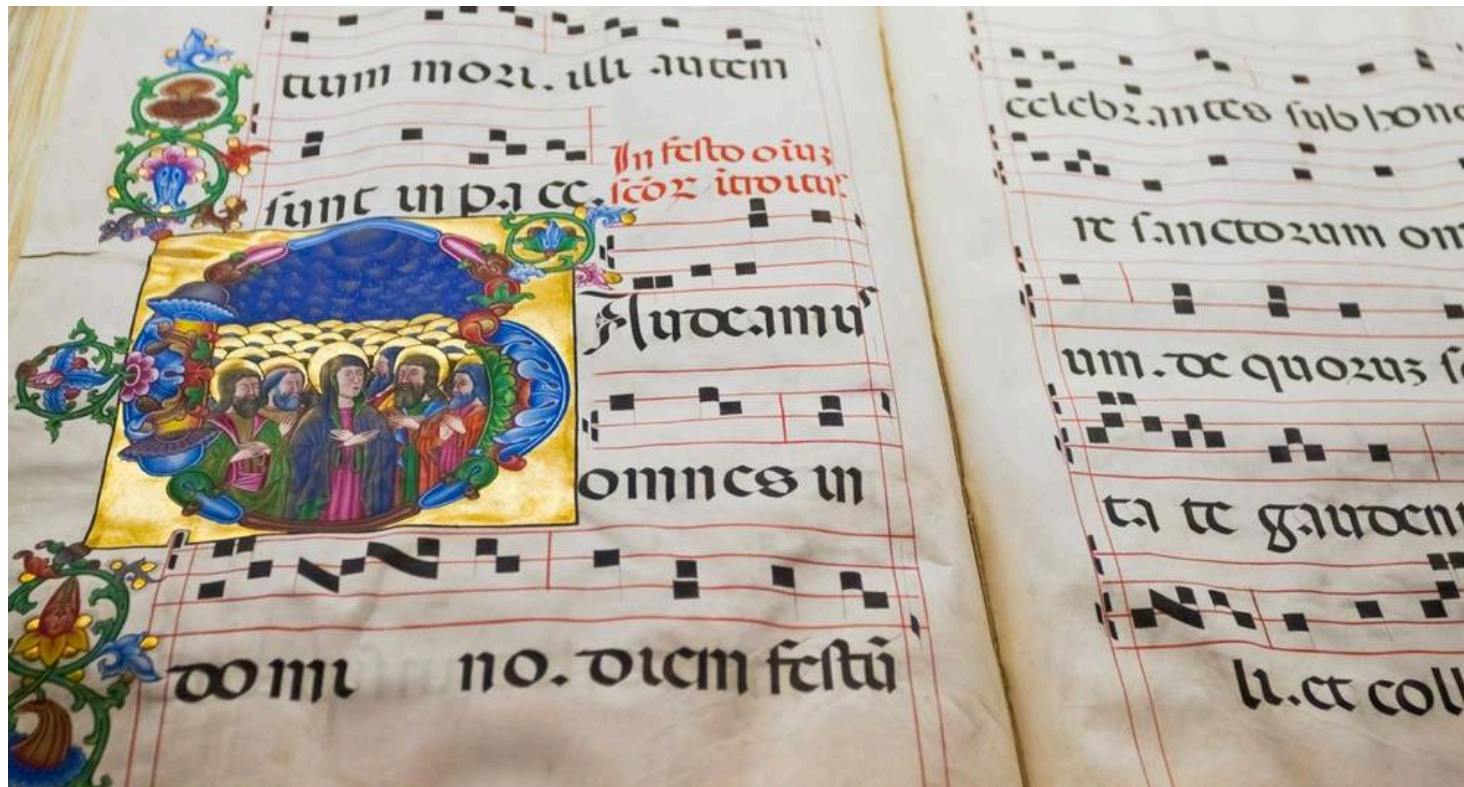 tium mori. illi autem
sunt in pace.
In festo oĩuʒ
scõꝝ ĩtroitus
Gaudeamus
omnes in
domino. diem festũ
celebrantes sub hono
re sanctorum om
um. de quoruʒ so
ta te gauden
li. et coll